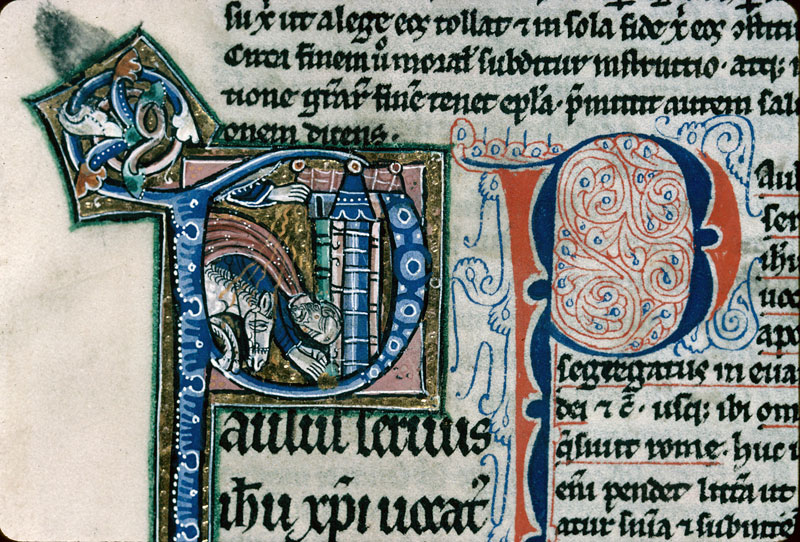 su x̄ ut a lege eos tollat ⁊ in sola fide x̄ eos ꝯstitu
Circa finem ů moralit̃ subditur instructio · atq;
tione gr̃aꝝ finẽ tenet ep̃la · p̃mittit autem sal
onem dicens ·
Paulus seruus
ih̃u xp̃i uocat᾿
P
Au
ser
ih̃u
uoc
apo
segregatus in eua
dei ⁊ c̃ · usq; ibi om
q̃ sunt rome · huc
eni᷒ pendet litt̃a ut
atur sũia ⁊ subinte